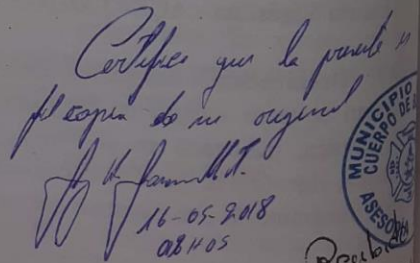 Certifico que la presente es
fiel copia de su original
16-05-2018
08H05
MUNICIPIO
CUERPO DE
ASESO